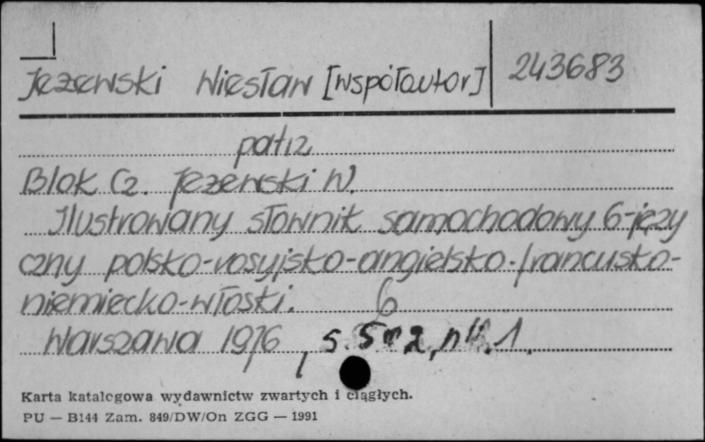 Jeżewski Wiesław [współautor] 243683
patrz
Blok Cz. Jeżewski W.
Ilustrowany słownik samochodowy 6-języ
czny polsko-rosyjsko-angielsko-francusko-
niemiecko-włoski. 6
Warszawa 1976, s. 5 2, 1.
Karta katalogowa wydawnictw zwartych i ciągłych.
PU — B144 Zam. 849/DW/On ZGG — 1991